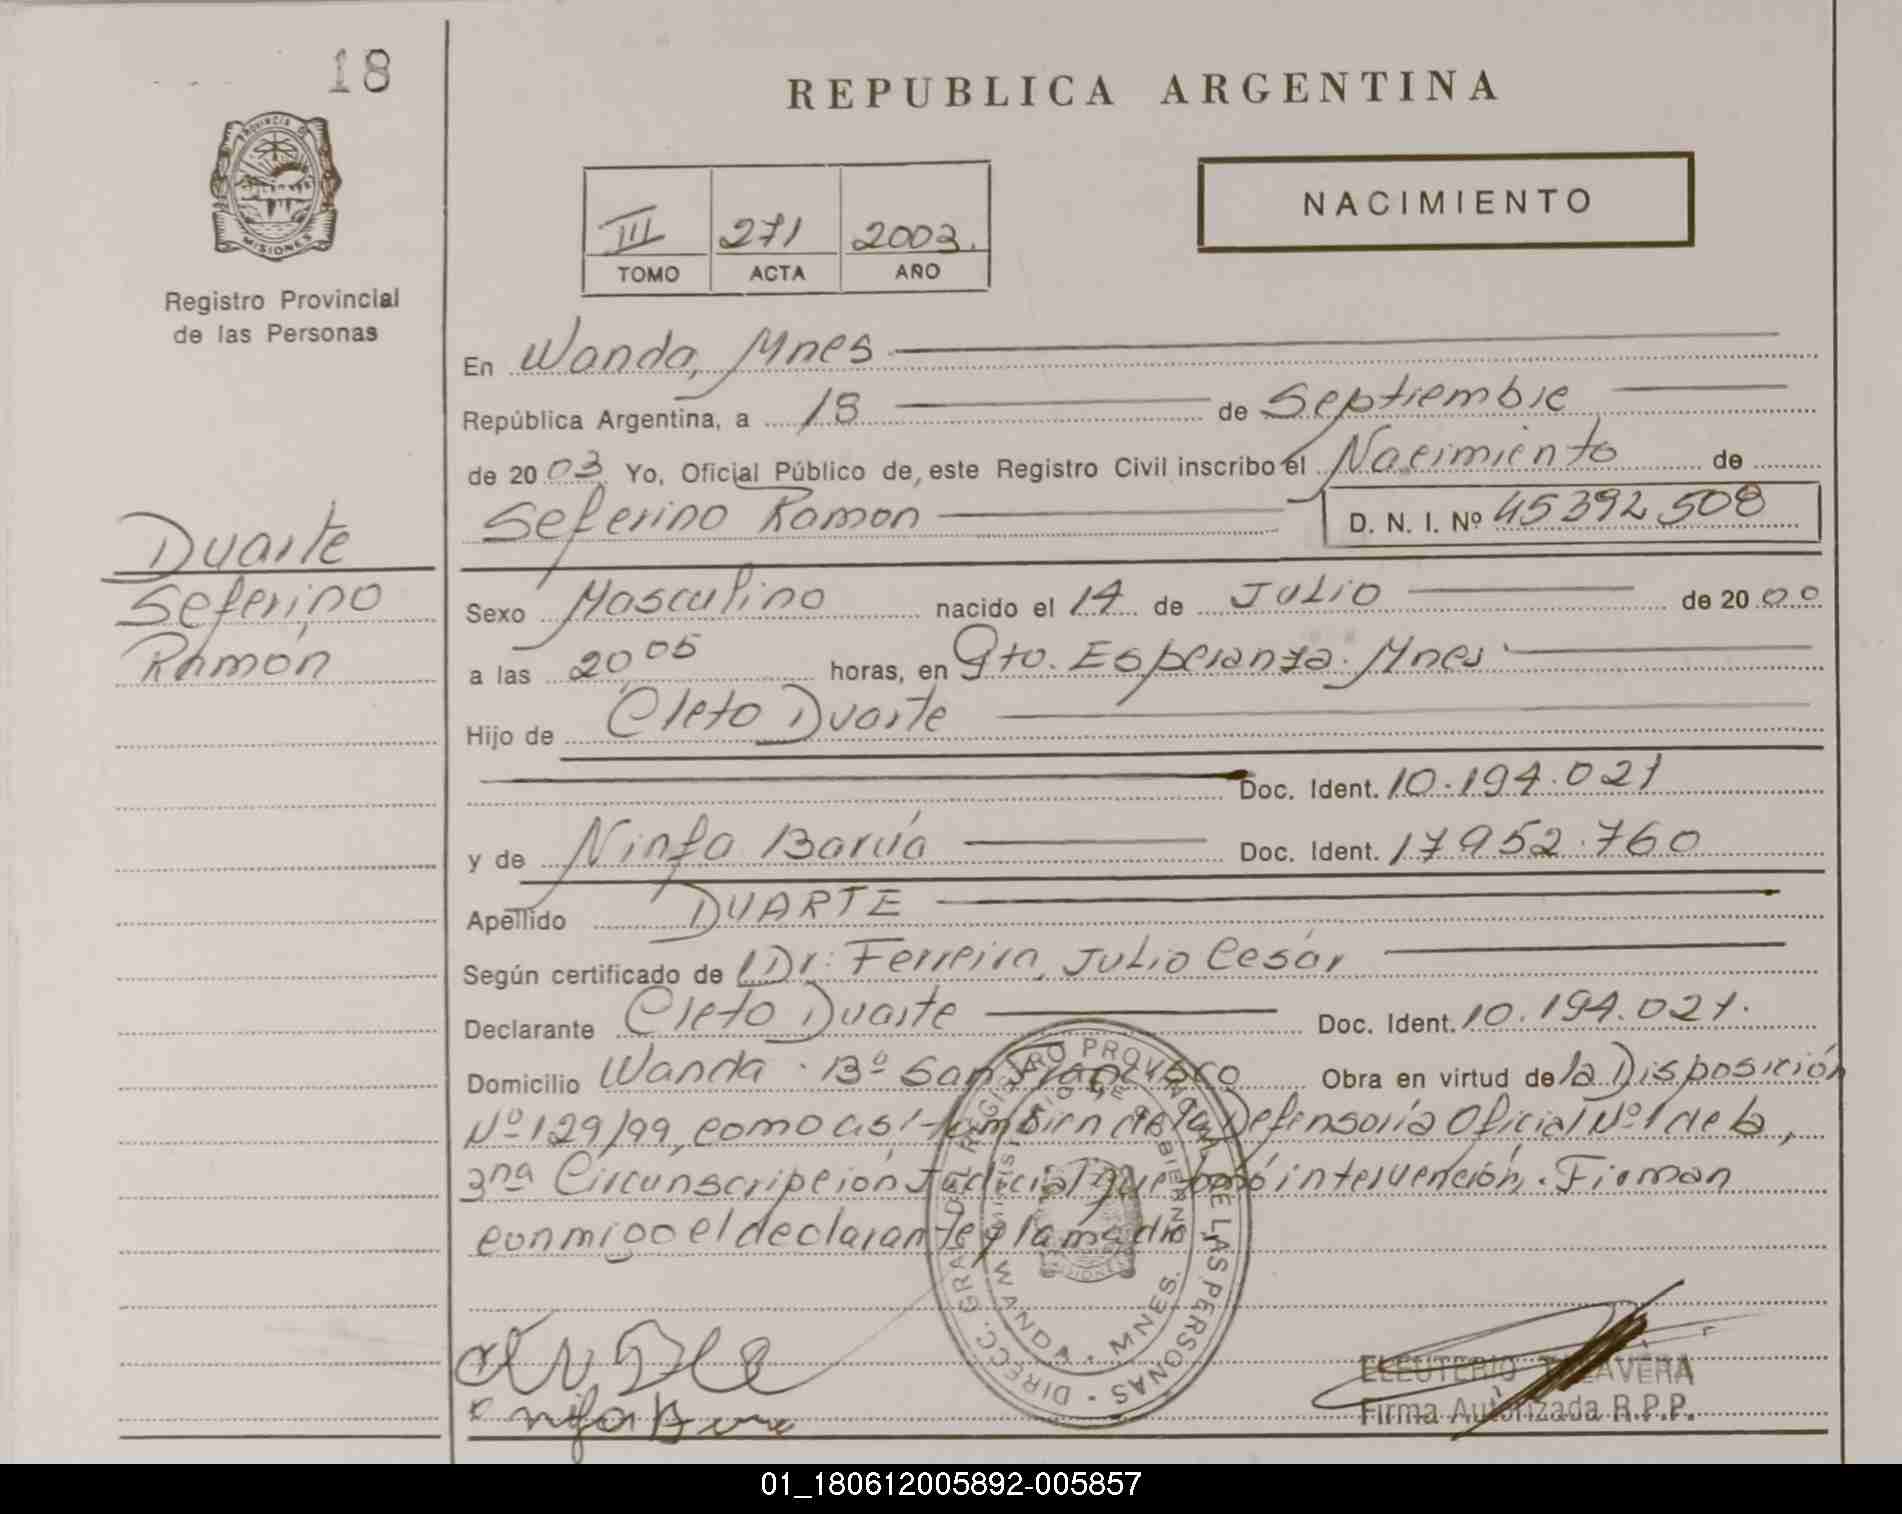 18
PROVINCIA DE
MISIONES
Registro Provincial
de las Personas
Duarte
Seferino
Ramón
REPUBLICA ARGENTINA
III 271 2003.
TOMO ACTA AÑO
NACIMIENTO
En Wanda, Mnes
República Argentina, a 18 de Septiembre
de 2003 Yo, Oficial Público de este Registro Civil inscribo el Nacimiento de
Seferino Ramon D. N. I. Nº 45392508
Sexo Masculino nacido el 14 de JULIO de 2000
a las 20,05 horas, en Pto. Esperanza. Mnes
Hijo de Cleto Duarte
Doc. Ident. 10.194.021
y de Ninfa Barúa Doc. Ident. 17952.760
Apellido DUARTE
Según certificado de Dr. Ferreira, Julio Cesár
Declarante Cleto Duarte Doc. Ident. 10.194.021.
Domicilio Wanda. Bº San Francisco Obra en virtud de la Disposición
Nº 129/99, como asi tambien de la Defensoría Oficial Nº1 de la,
3ra Circunscripción Judicial que tomó intervención. Firman
conmigo el declarante y la madre
DIRECC. GRAL. DEL REGISTRO PROVINCIAL DE LAS PERSONAS
MINISTERIO DE GOBIERNO
MISIONES
WANDA - MNES.
ELEUTERIO TALAVERA
Firma Autorizada R.P.P.
01_180612005892-005857